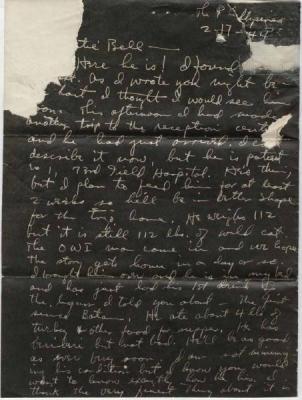 The P
2-17-45
Bell —
Here he is! I found
As I wrote you night be-
I thought I would see him
soon. This afternoon I had made
another trip to the reception center
and he had just arrived. I can't
describe it now, but he is patient
in 73rd Field Hospital.
but I plan to feed him for at least
2 weeks so he'll be in better shape
for the trip home. He weighs 112
but it is still 112 lbs. of wild cat.
The OWI man came in and we hope
the story gets home in a day or so.
and has just had his 1st drink
I told you about. The first
since Bataan. He ate about 4 lbs of
turkey & other food for supper. He has
beriberi but not bad. He'll be as good
as ever very soon. I am not
his condition but I know you would
want to know exactly how he is. I
think the very finest thing about it is